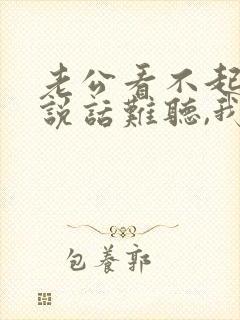 老公看不起
說話難聽,我
包養郭